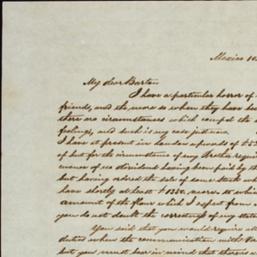 Mexico 18
My dear Barton
I have a particular horror of
friends, and the more so when they have be
there are circumstances which compel the
feelings, and such is my case just now.
I have at present in hand a of
of but for the circumstance of my Brother requi
owner of no dividend having been paid by th
but having ordered the sale of some State
have shortly at least $1350. more, to whic
amount of the flour which I expect from
you do not doubt the correctness of my state
You said that you would require all
duties when the communication with Ver
but you must bear in mind that there is